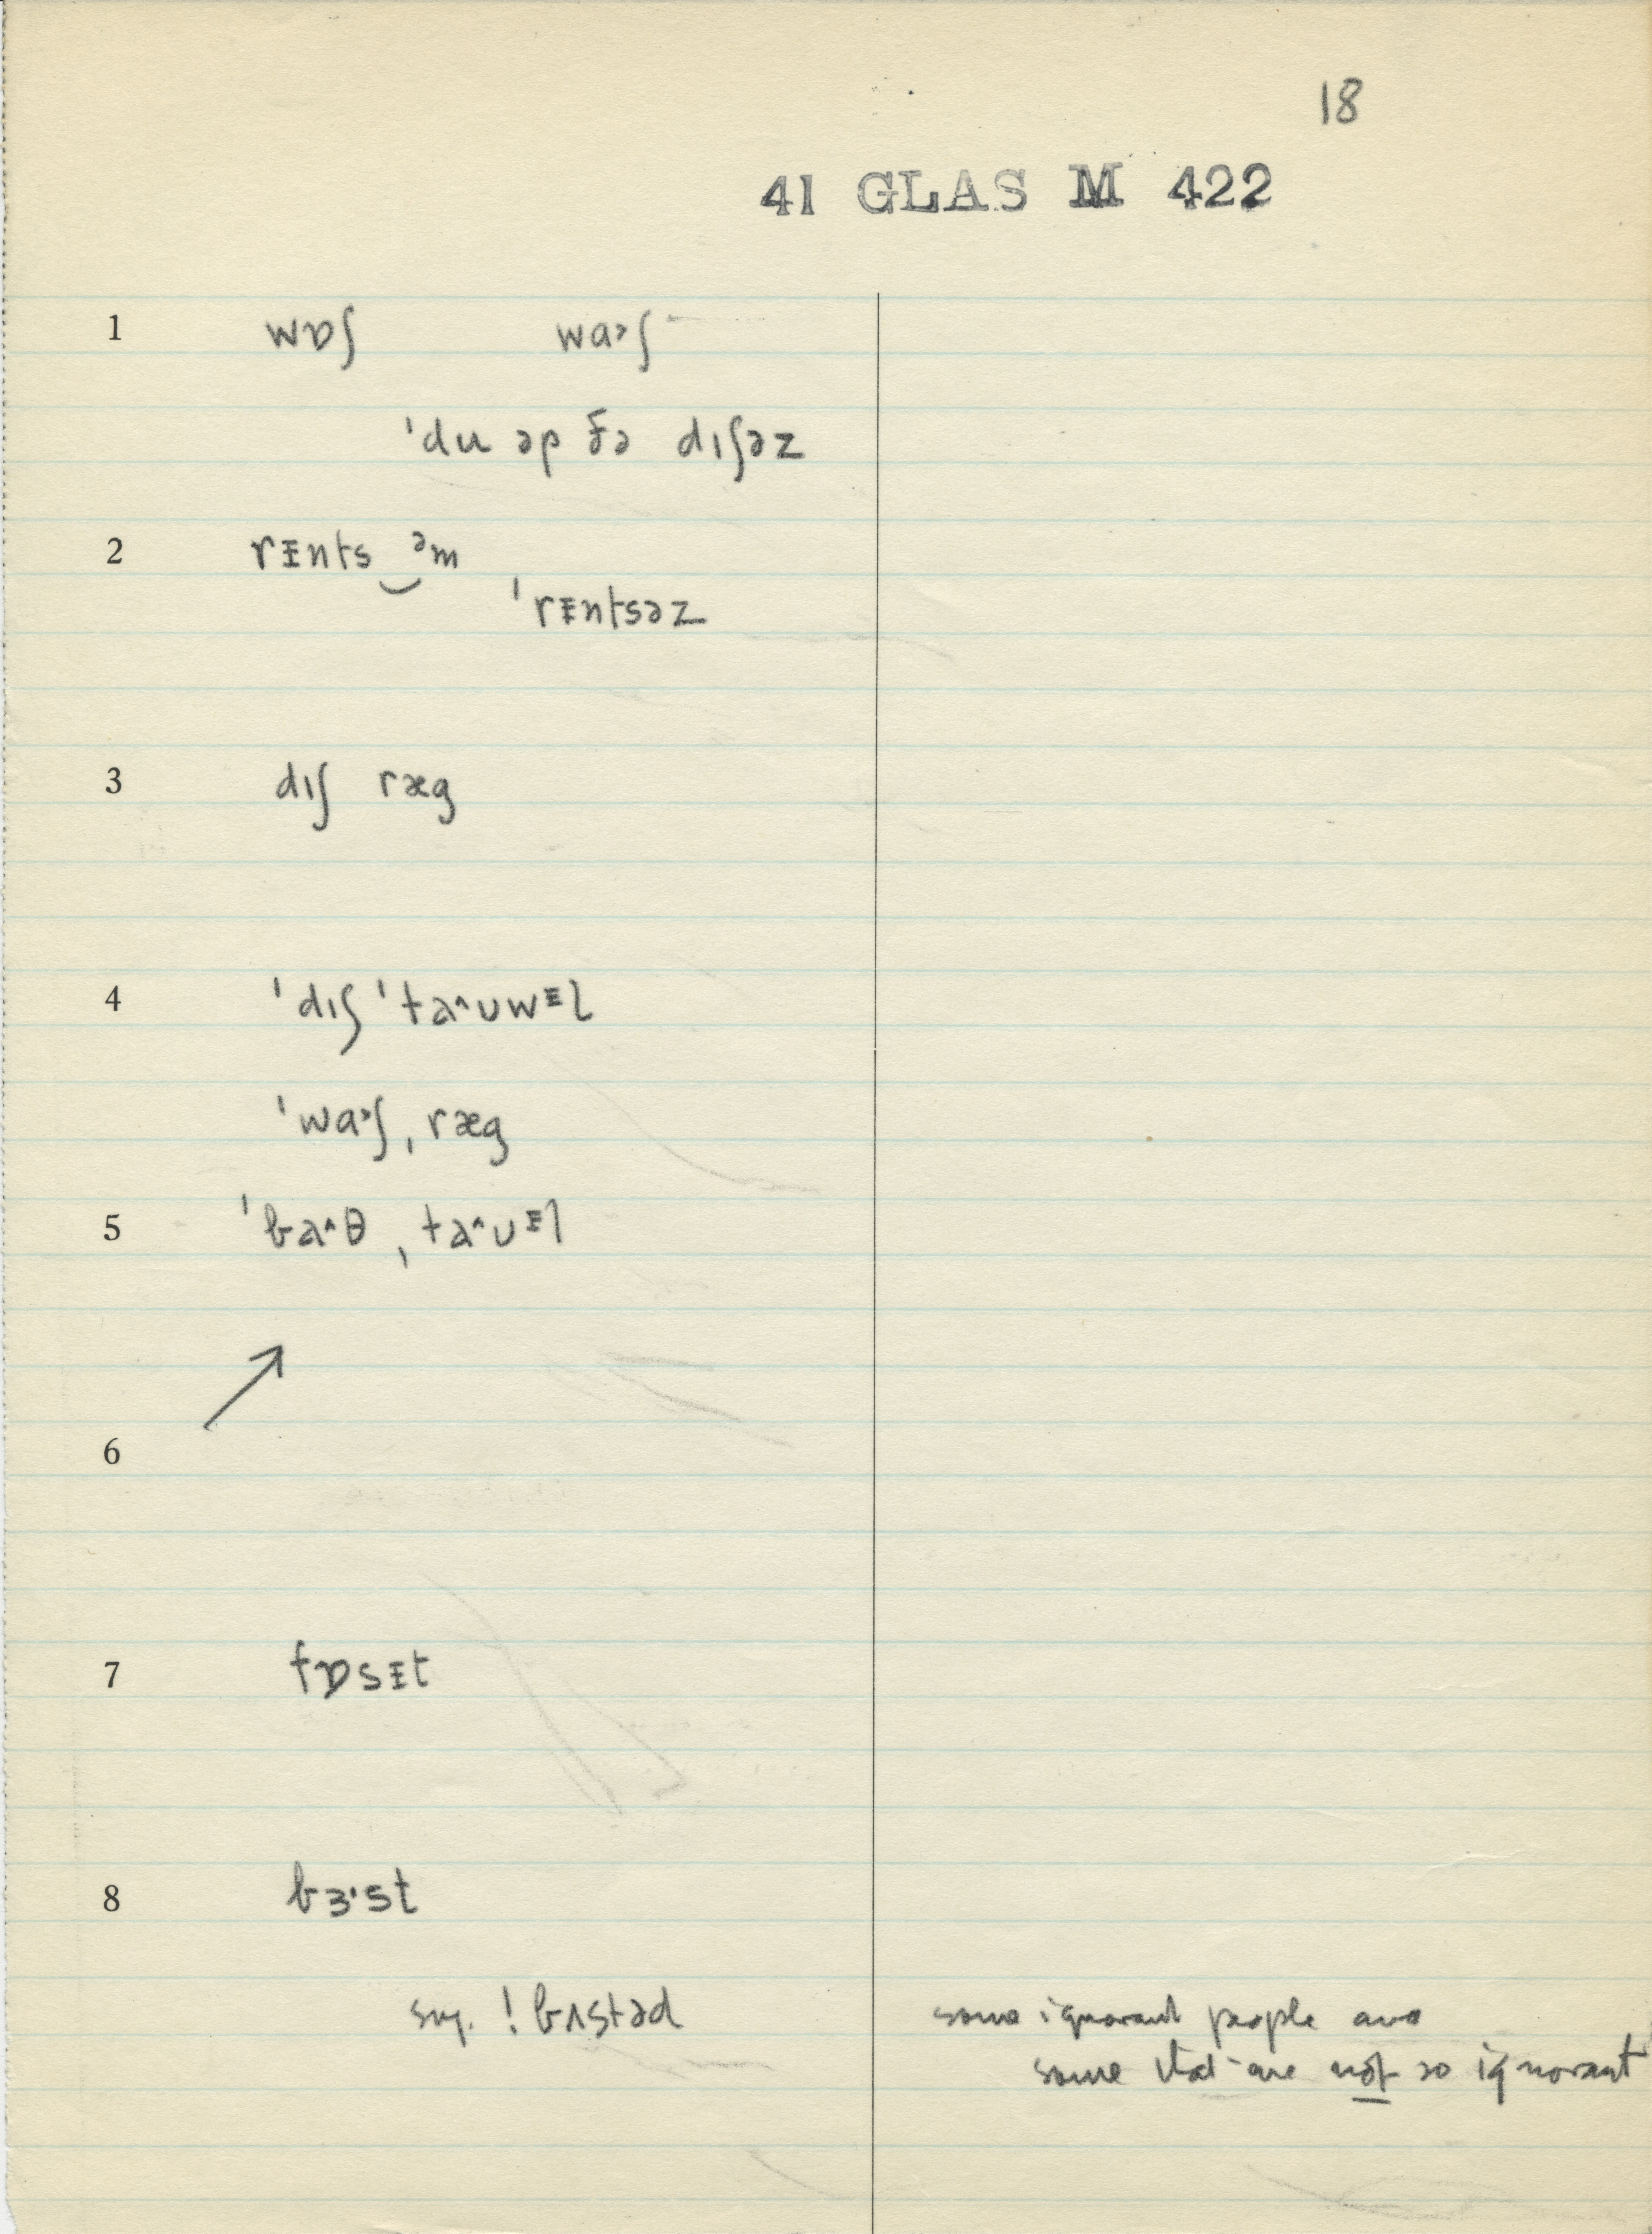 18
41 GLAS M 422
1 wɒʃ wa˃ʃ
ˈdu əp ðə dɪʃəz
2 rᵻnts‿əm
ˈrᵻntsəz
3 dɪʃ ræg
4 ˈdɪʃ ˈta^ʊwᵻɫ
ˈwa˃ʃˌræg
5 ˈba^θ ˌta^ʊᵻl
↗
6
7 fɒsᵻt
8 bɜ·st
sug. ! bʌstəd
some ignorant people and
some that are not so ignorant